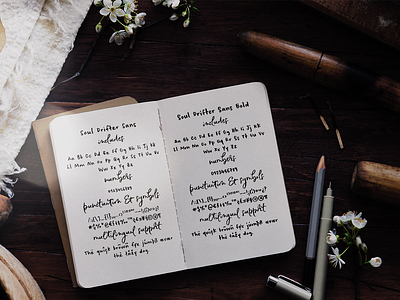 Soul Drifter Sans
includes
Aa Bb Cc Dd Ee Ff Gg Hh Ii Jj Kk
Ll Mm Nn Oo Pp Qq Rr Ss Tt Uu Vv
Ww Xx Yy Zz
numbers
0123456789
punctuation & symbols
multilingual support
The quick brown fox jumps over
the lazy dog
Soul Drifter Sans Bold
includes
Aa Bb Cc Dd Ee Ff Gg Hh Ii Jj Kk
Ll Mm Nn Oo Pp Qq Rr Ss Tt Uu Vv
Ww Xx Yy Zz
numbers
0123456789
punctuation & symbols
multilingual support
The quick brown fox jumps over
the lazy dog